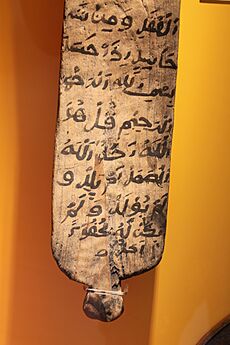 العقد ومن شر
حاسد إذا حسد
بسم الله الرحمن
الرحيم قل هو
الله احد الله
الصمد لم يلد و
لم يولد ولم
يكن له كفوا
احد